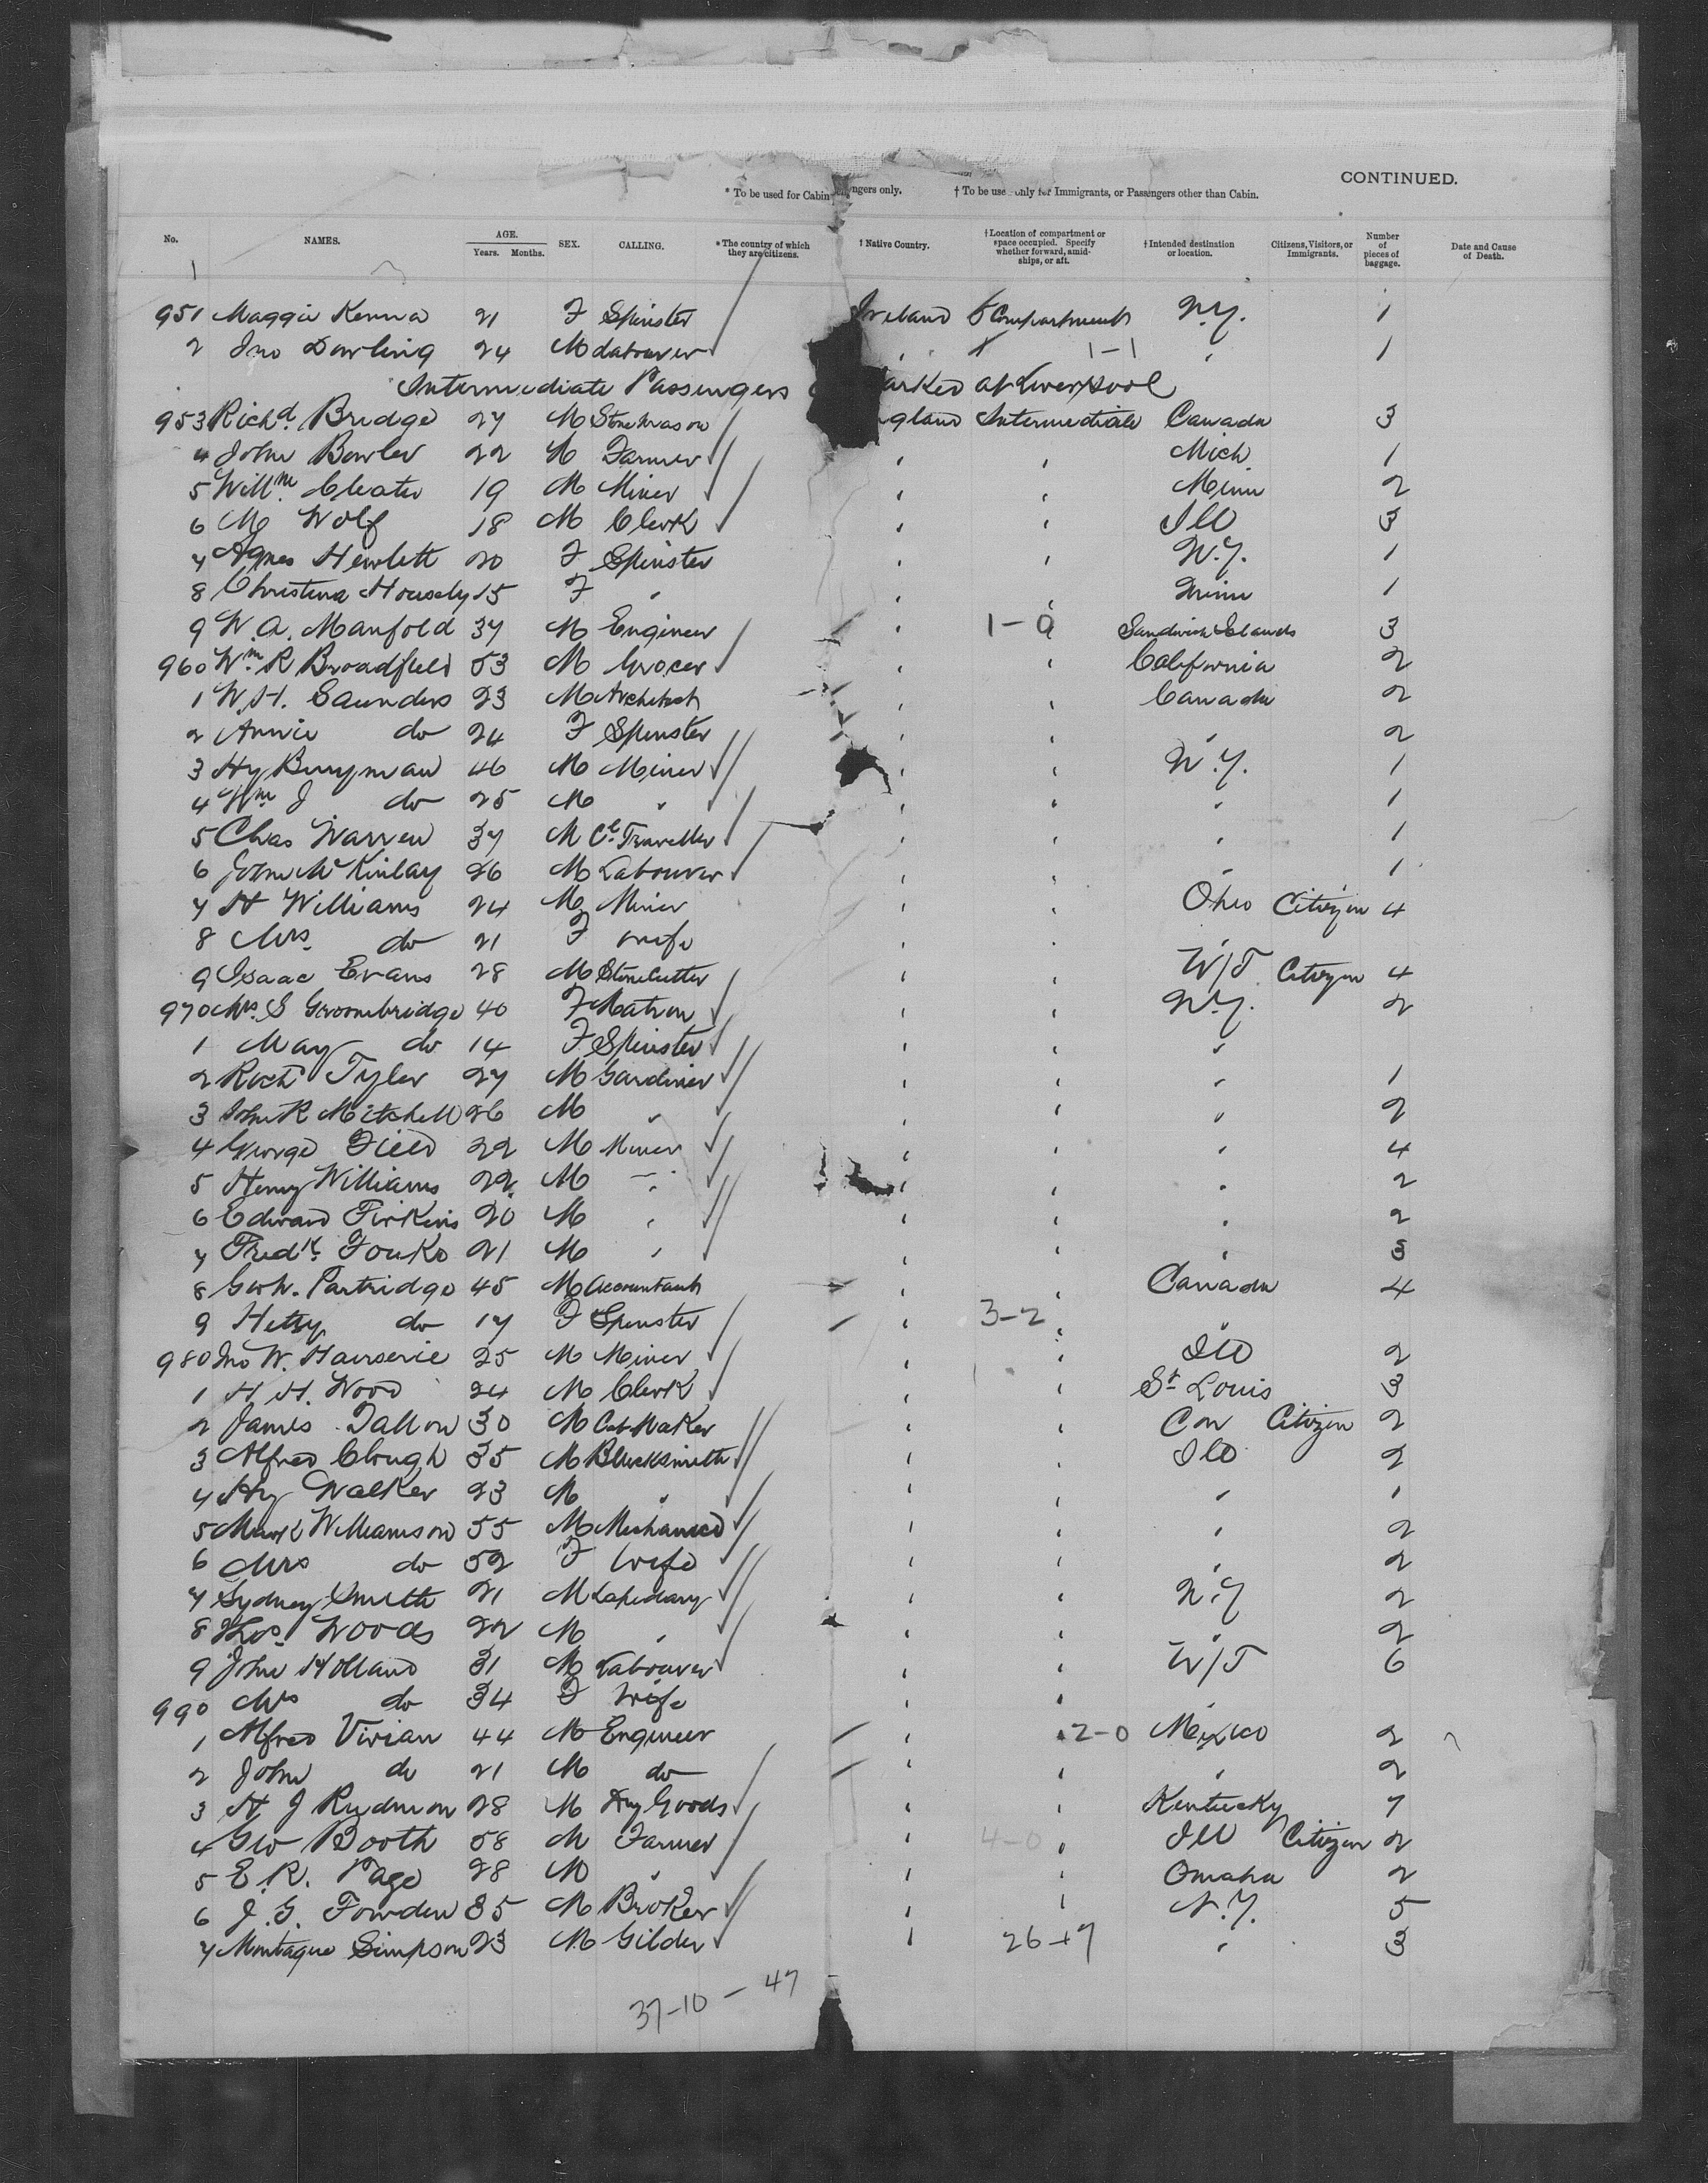 CONTINUED.
* To be used for Cabin ngers only. † To be use only for Immigrants, or Passengers other than Cabin.
No. NAMES. AGE. Years. Months. SEX. CALLING. * The country of which they are citizens. † Native Country. † Location of compartment or space occupied. Specify whether forward, amidships, or aft. † Intended destination or location. Citizens, Visitors, or Immigrants. Number of pieces of baggage. Date and Cause of Death.
1
951 Maggie Kenna 21 F Spinster Ireland Compartment N.Y. 1
2 Jno Dowling 24 M Labourer 1-1 " 1
Intermediate Passengers arked at Liverpool
953 Richd. Bridge 27 M Stone Mason gland Intermediate Canada 3
4 John Bowler 22 M Farmer " " Mich 1
5 Willm Cleator 19 M Miner " " Minn 2
6 My Wolf 18 M Clerk " " Ill 3
7 Agnes Hewlett 20 F Spinster " " N.Y. 1
8 Christina Housely 15 F " " " Minn 1
9 W. A. Manfold 37 M Engineer " 1-0 " Sandwich Islands 3
960 Wm R Broadfield 53 M Grocer " " California 2
1 W. H. Saunders 23 M Architect " " Canada 2
2 Annie do 24 F Spinster " " " 2
3 Hy Berryman 46 M Miner " " N.Y. 1
4 Wm J do 25 M " " " " 1
5 Chas Warren 37 M Cl. Traveller " " " 1
6 John McKinlay 26 M Labourer " " " 1
7 H Williams 24 M Miner " " Ohio Citizen 4
8 Mrs. do 21 F wife " " "
9 Isaac Evans 28 M Stonecutter " " W/T Citizen 4
970 Mrs. S Groombridge 40 F Matron " " N.Y. 2
1 May do 14 F Spinster " " "
2 Richd Tyler 27 M Gardiner " " " 1
3 John R Mitchell 26 M " " " " 2
4 George Field 22 M Miner " " " 4
5 Henry Williams 22 M " " " " 2
6 Edward Firkins 20 M " " " " 2
7 Fredk. Fouke 21 M " " " " 3
8 Geo W. Partridge 45 M Accountant " " Canada 4
9 Hetty do 17 F Spinster " 3-2 " "
980 Jno W. Hairsene 25 M Miner " " Ill 2
1 H. H. Wood 24 M Clerk " " St Louis 3
2 James Tallon 30 M Cab Maker " " Con Citizen 2
3 Alfred Clough 35 M Blacksmith " " Ill 2
4 Hy Walker 23 M " " " " 1
5 Mark Williamson 55 M Mechanic " " " 2
6 Mrs do 52 F wife " " " 2
7 Sydney Smith 21 M Lapidary " " N.Y 2
8 Thos. Woods 22 M " " " " 2
9 John Holland 31 M Labourer " " W/T 6
990 Mrs do 34 F Wife " "
1 Alfred Vivian 44 M Engineer " " 2-0 Mexico 2
2 John do 21 M do " " " 2
3 H J Rudmon 28 M Dry Goods " " Kentucky 7
4 Geo Booth 58 M Farmer " 4-0 " Ill Citizen 2
5 E. R. Page 28 M " " " Omaha 2
6 J. G. Fowden 35 M Broker " " N.Y. 5
7 Montague Simpson 23 M Gilder " 26+7 " 3
37-10 - 47